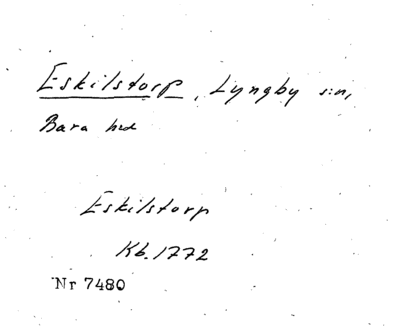 Eskilstorp, Lyngby s:n,
Bara hd
Eskilstorp
Kb. 1772
Nr 7480